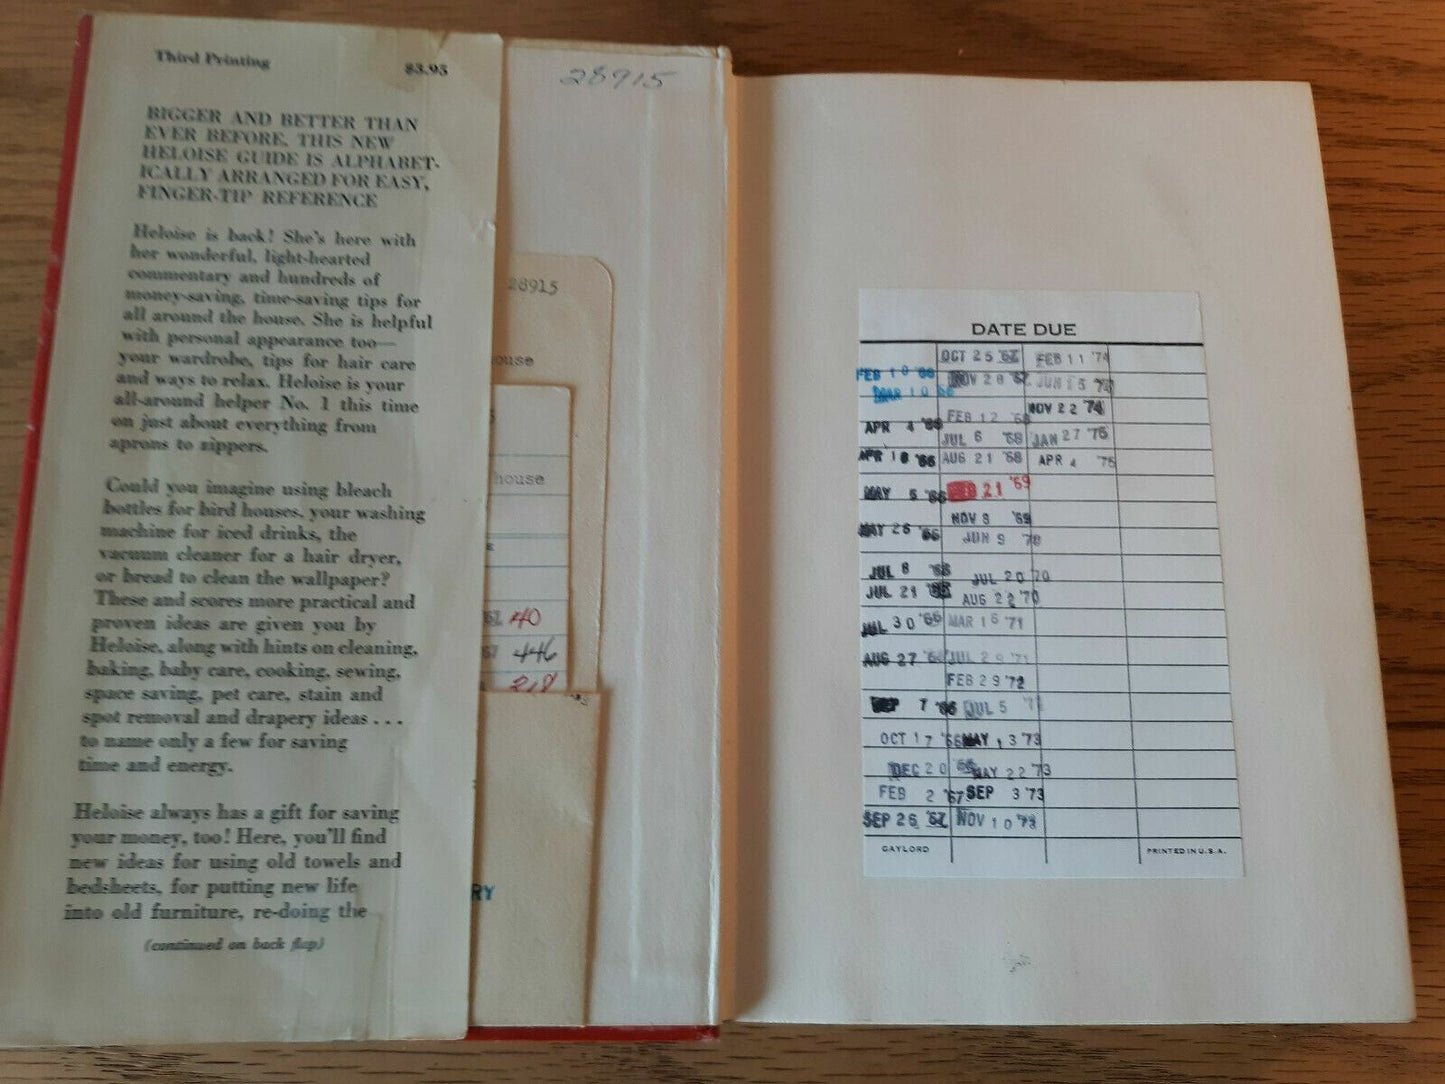 Third Printing
$3.95
BIGGER AND BETTER THAN
EVER BEFORE, THIS NEW
HELOISE GUIDE IS ALPHABET-
ICALLY ARRANGED FOR EASY,
FINGER-TIP REFERENCE
Heloise is back! She's here with
her wonderful, light-hearted
commentary and hundreds of
money-saving, time-saving tips for
all around the house. She is helpful
with personal appearance too—
your wardrobe, tips for hair care
and ways to relax. Heloise is your
all-around helper No. 1 this time
on just about everything from
aprons to zippers.
Could you imagine using bleach
bottles for bird houses, your washing
machine for iced drinks, the
vacuum cleaner for a hair dryer,
or bread to clean the wallpaper?
These and scores more practical and
proven ideas are given you by
Heloise, along with hints on cleaning,
baking, baby care, cooking, sewing,
space saving, pet care, stain and
spot removal and drapery ideas . . .
to name only a few for saving
time and energy.
Heloise always has a gift for saving
your money, too! Here, you'll find
new ideas for using old towels and
bedsheets, for putting new life
into old furniture, re-doing the
(continued on back flap)
28915
28915
ouse
house
40
446
218
RY
DATE DUE
FEB 10 '66
MAR 10 '66
APR 4 '66
APR 18 '66
MAY 5 '66
MAY 26 '66
JUL 8 '66
JUL 21 '66
JUL 30 '66
AUG 27 '66
SEP 7 '66
OCT 17 '66
DEC 20 '66
FEB 2 '67
SEP 26 '67
OCT 25 '67
NOV 28 '67
FEB 12 '68
JUL 6 '68
AUG 21 '68
FEB 21 '69
NOV 9 '69
JUN 9 '70
JUL 20 '70
AUG 22 '70
MAR 16 '71
JUL 29 '71
FEB 29 '72
JUL 5
MAY 13 '73
MAY 22 '73
SEP 3 '73
NOV 10 '73
FEB 11 '74
JUN 15 '74
NOV 22 '74
JAN 27 '75
APR 4 '75
GAYLORD
PRINTED IN U.S.A.